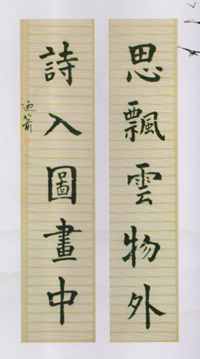 思飄雲物外
詩入圖畫中